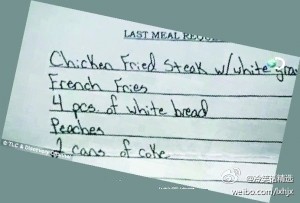 LAST MEAL
Chicken Fried Steak w/white
French Fries
4 pcs of white bread
Peaches
2 cans of coke
© TLC &
weibo.com/lxhjx